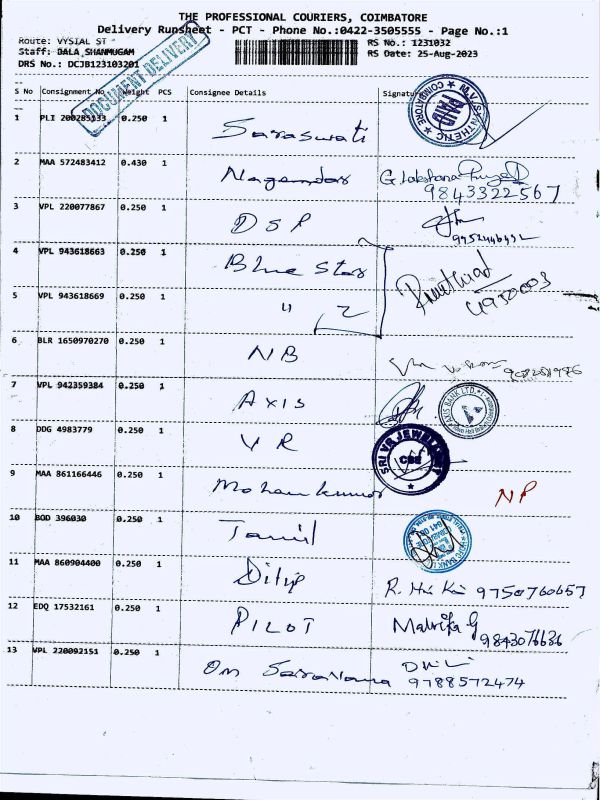 THE PROFESSIONAL COURIERS, COIMBATORE
Delivery Runsheet - PCT - Phone No.:0422-3505555 - Page No.:1
Route: VYSIAL ST
RS No.: 1231032
Staff: BALA SHANMUGAM
RS Date: 25-Aug-2023
DRS No.: DCJB123103201
DOCUMENT DELIVERY
S No Consignment No Weight PCS Consignee Details Signature
1 PLI 200285133 0.250 1 Saraswati
COIMBATORE M.V. SYNTHETIC PAID
2 MAA 572483412 0.430 1 Nagendar G. Lakshana
9843322567
3 VPL 220077867 0.250 1 DSP
4 VPL 943618663 0.250 1 Blue Star
5 VPL 943618669 0.250 1 " 2
4950003
6 BLR 1650970270 0.250 1 NB
7 VPL 942359384 0.250 1 AXIS
AXIS BANK LTD.
8 DDG 4983779 0.250 1 VR
SRI VR JEWELLERY CBE
9 MAA 861166446 0.250 1 Mohan kumar NP
10 BOD 396030 0.250 1 Tamil
11 MAA 860904400 0.250 1 Dilip R. Hari 9750760657
12 EDQ 17532161 0.250 1 PILOT Malvika G
9843076636
13 VPL 220092151 0.250 1 Om Saravana
9788572474